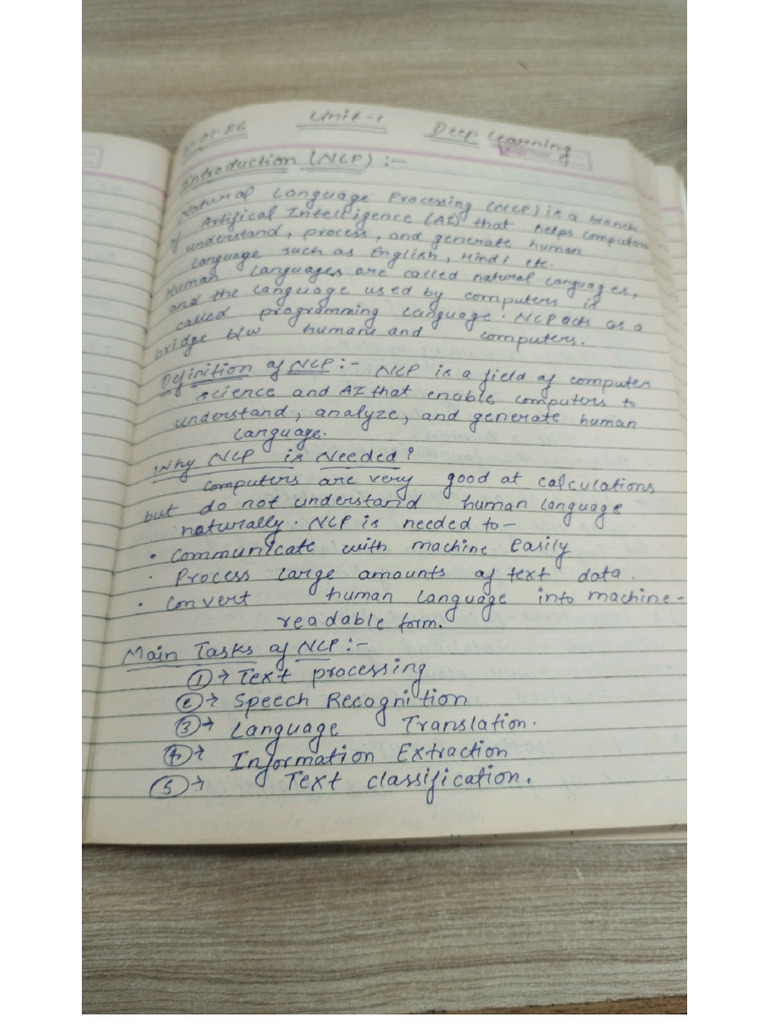 Unit-1 Deep Learning
Introduction (NLP) :-
Natural Language Processing (NLP) is a branch
of Artifical Intelligence (AI) that helps computers
understand, process, and generate human
language such as English, Hindi etc.
Human languages are called natural languages,
and the language used by computers is
called programming language. NLP acts as a
bridge b/w humans and computers.
Definition of NLP :- NLP is a field of computer
science and AI that enable computers to
understand, analyze, and generate human
language.
Why NLP is Needed?
Computers are very good at calculations
but do not understand human language
naturally. NLP is needed to-
• Communicate with machine Easily
• Process large amounts of text data.
• Convert human language into machine-
readable form.
Main Tasks of NLP :-
① → Text processing
② → Speech Recognition
③ → Language Translation.
④ → Information Extraction
⑤ → Text classification.